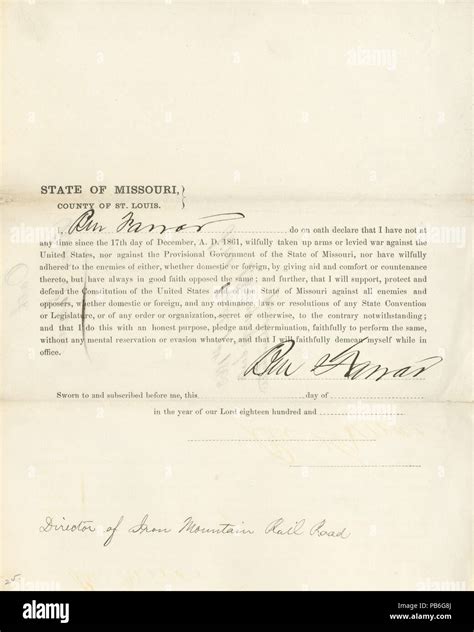 alamy
STATE OF MISSOURI,
COUNTY OF ST. LOUIS.
I, Ben Farrar do on oath declare that I have not at
any time since the 17th day of December, A. D. 1861, wilfully taken up arms or levied war against the
United States, nor against the Provisional Government of the State of Missouri, nor have wilfully
adhered to the enemies of either, whether domestic or foreign, by giving aid and comfort or countenance
thereto, but have always in good faith opposed the same; and further, that I will support, protect and
defend the Constitution of the United States and of the State of Missouri against all enemies and
opposers, whether domestic or foreign, and any ordinance, laws or resolutions of any State Convention
or Legislature, or of any order or organization, secret or otherwise, to the contrary notwithstanding;
and that I do this with an honest purpose, pledge and determination, faithfully to perform the same,
without any mental reservation or evasion whatever, and that I will faithfully demean myself while in
office.
Ben Farrar
Sworn to and subscribed before me, this day of
in the year of our Lord eighteen hundred and
Director of Iron Mountain Rail Road
25
alamy
Image ID: PB6G8J
www.alamy.com